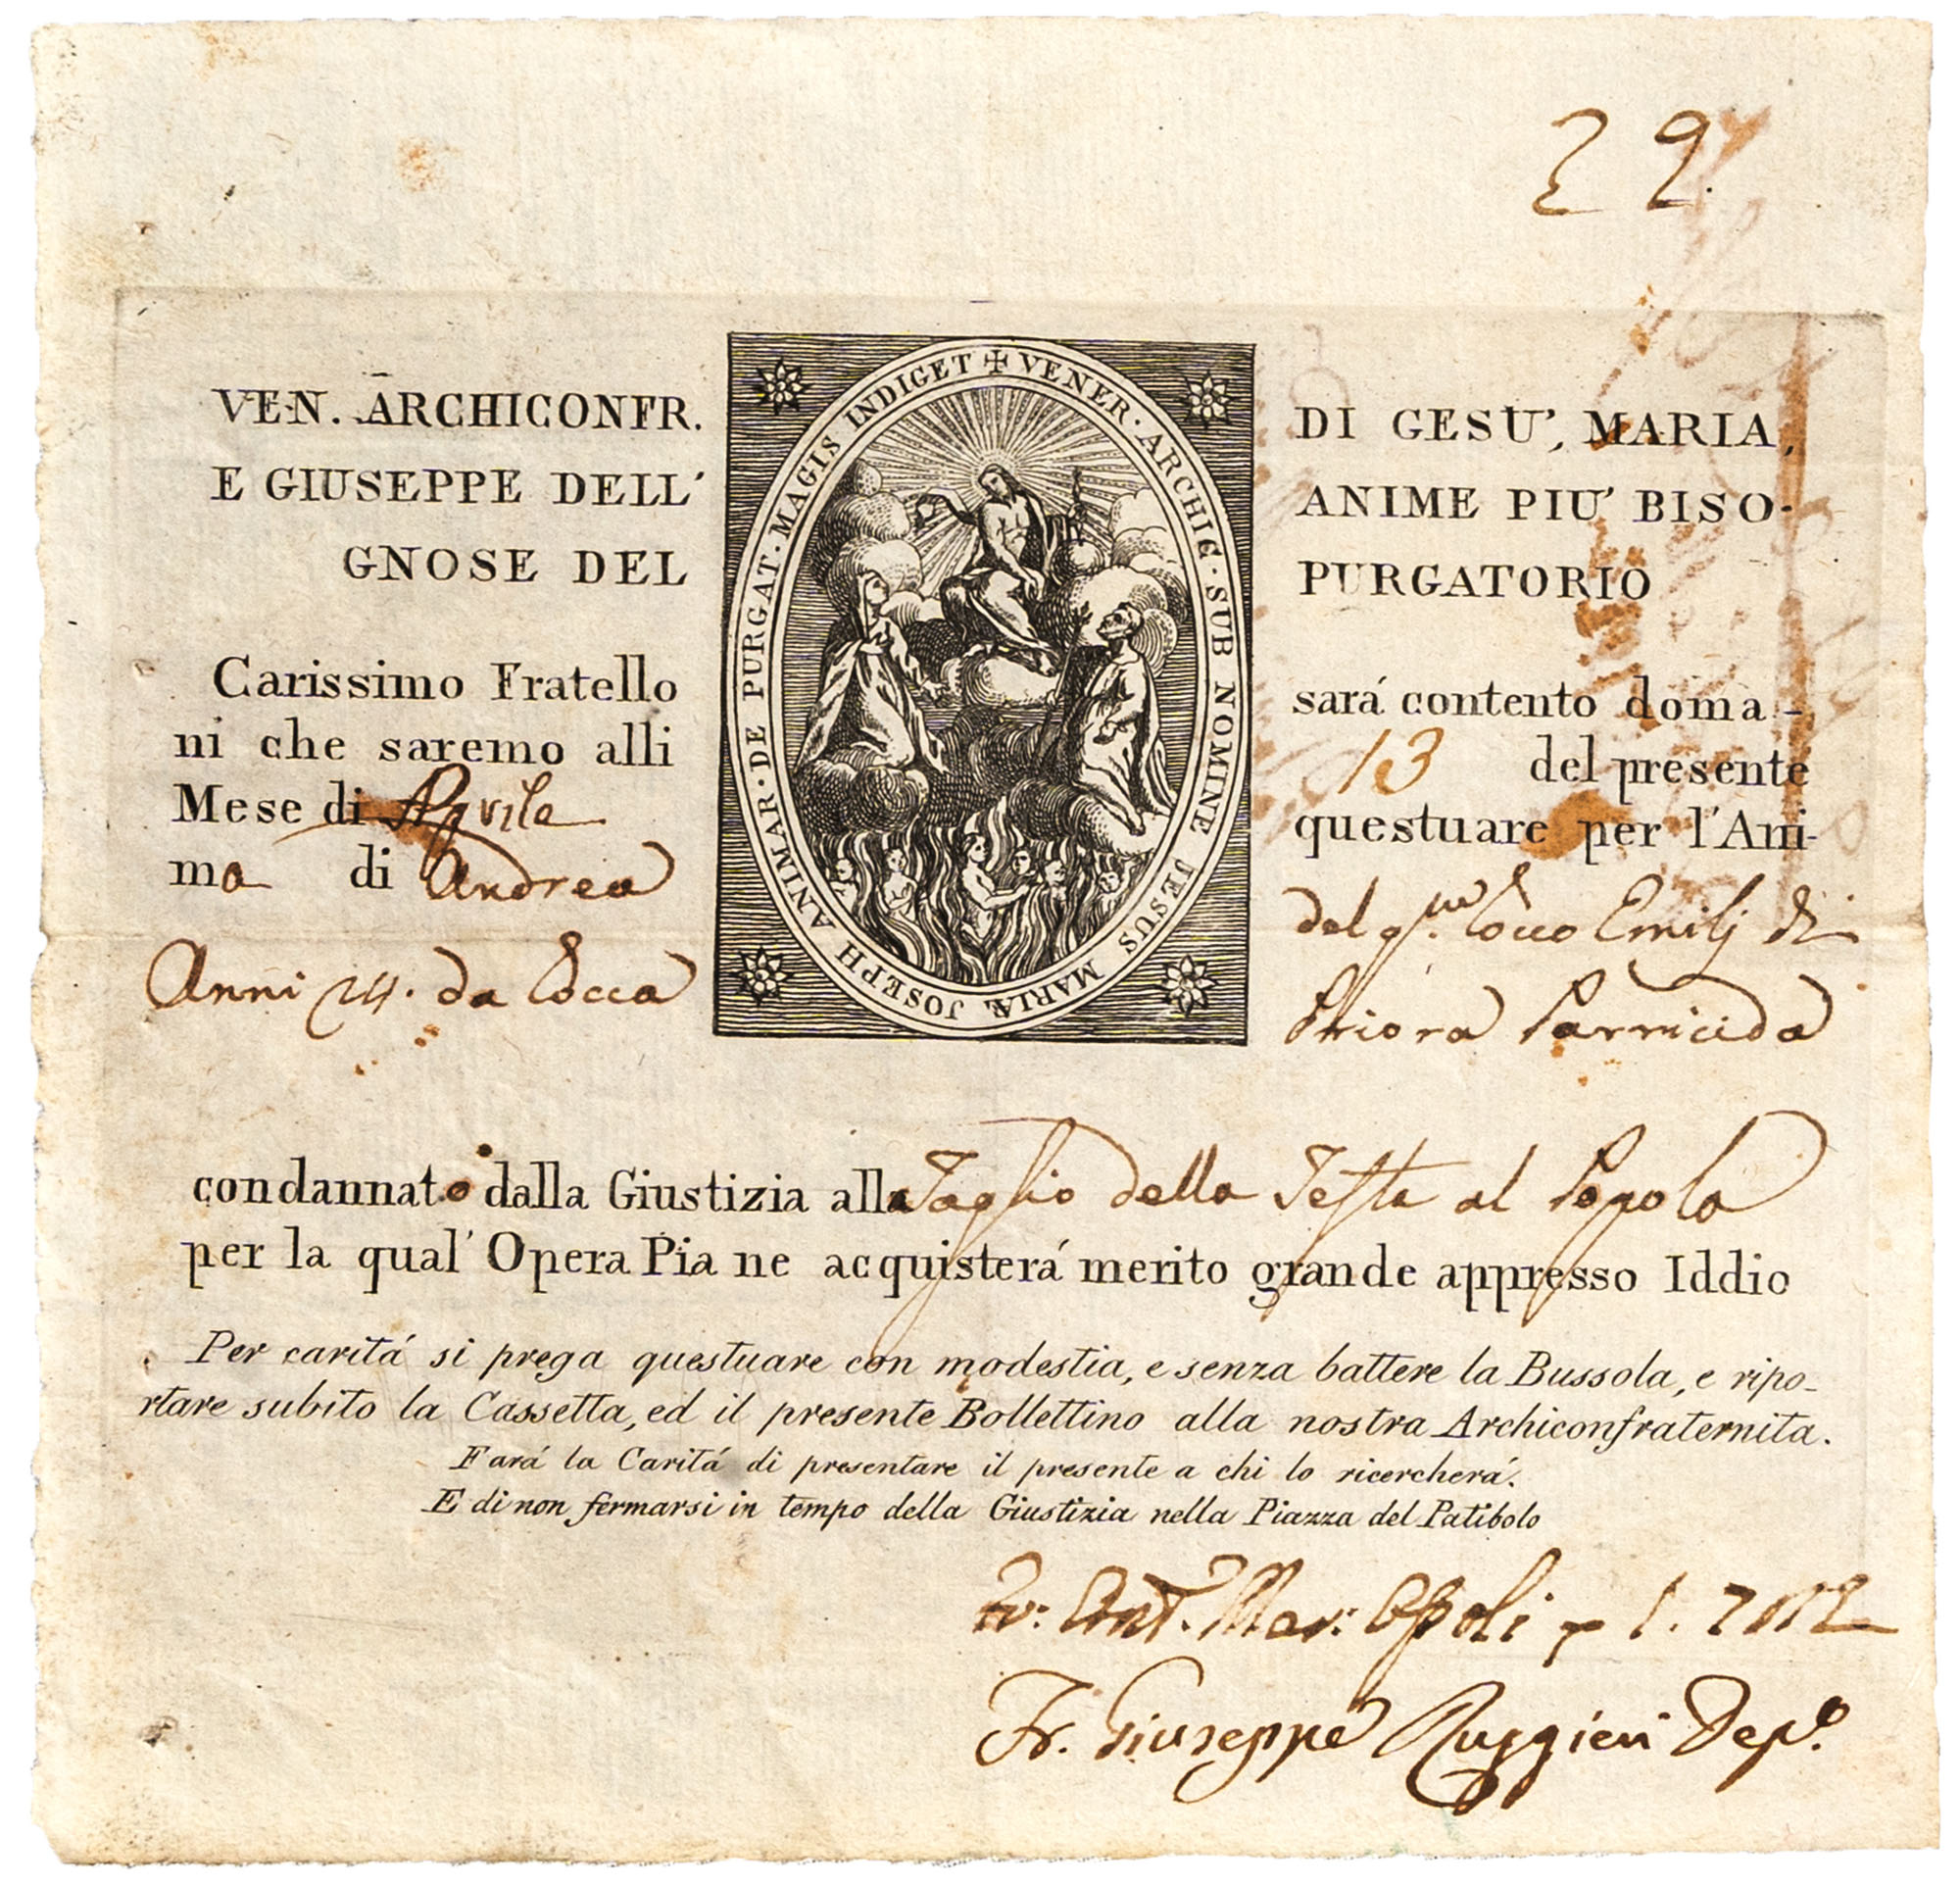 29.
VEN. ARCHICONFR. DI GESU', MARIA,
E GIUSEPPE DELL' ANIME PIU' BISO-
GNOSE DEL PURGATORIO
✠ VENER · ARCHIC · SUB NOMINE JESUS MARIÆ JOSEPH ANIMAR · DE PURGAT · MAGIS INDIGET
Carissimo Fratello sará contento doma-
ni che saremo alli 13 del presente
Mese di Aprile questuare per l'Ani-
ma di Andrea del qm. Cocco Emilj di
Anni 24. da Rocca Priora Parricida
condannato dalla Giustizia alla Taglio della Testa al Popolo
per la qual' Opera Pia ne acquisterá merito grande appresso Iddio
Per caritá si prega questuare con modestia, e senza battere la Bussola, e ripo-
rtare subito la Cassetta, ed il presente Bollettino alla nostra Archiconfraternita.
Fará la Caritá di presentare il presente a chi lo ricercherá.
E di non fermarsi in tempo della Giustizia nella Piazza del Patibolo
Fr. Ant. Mar.
Fr. Giuseppe Ruggieri Depo.